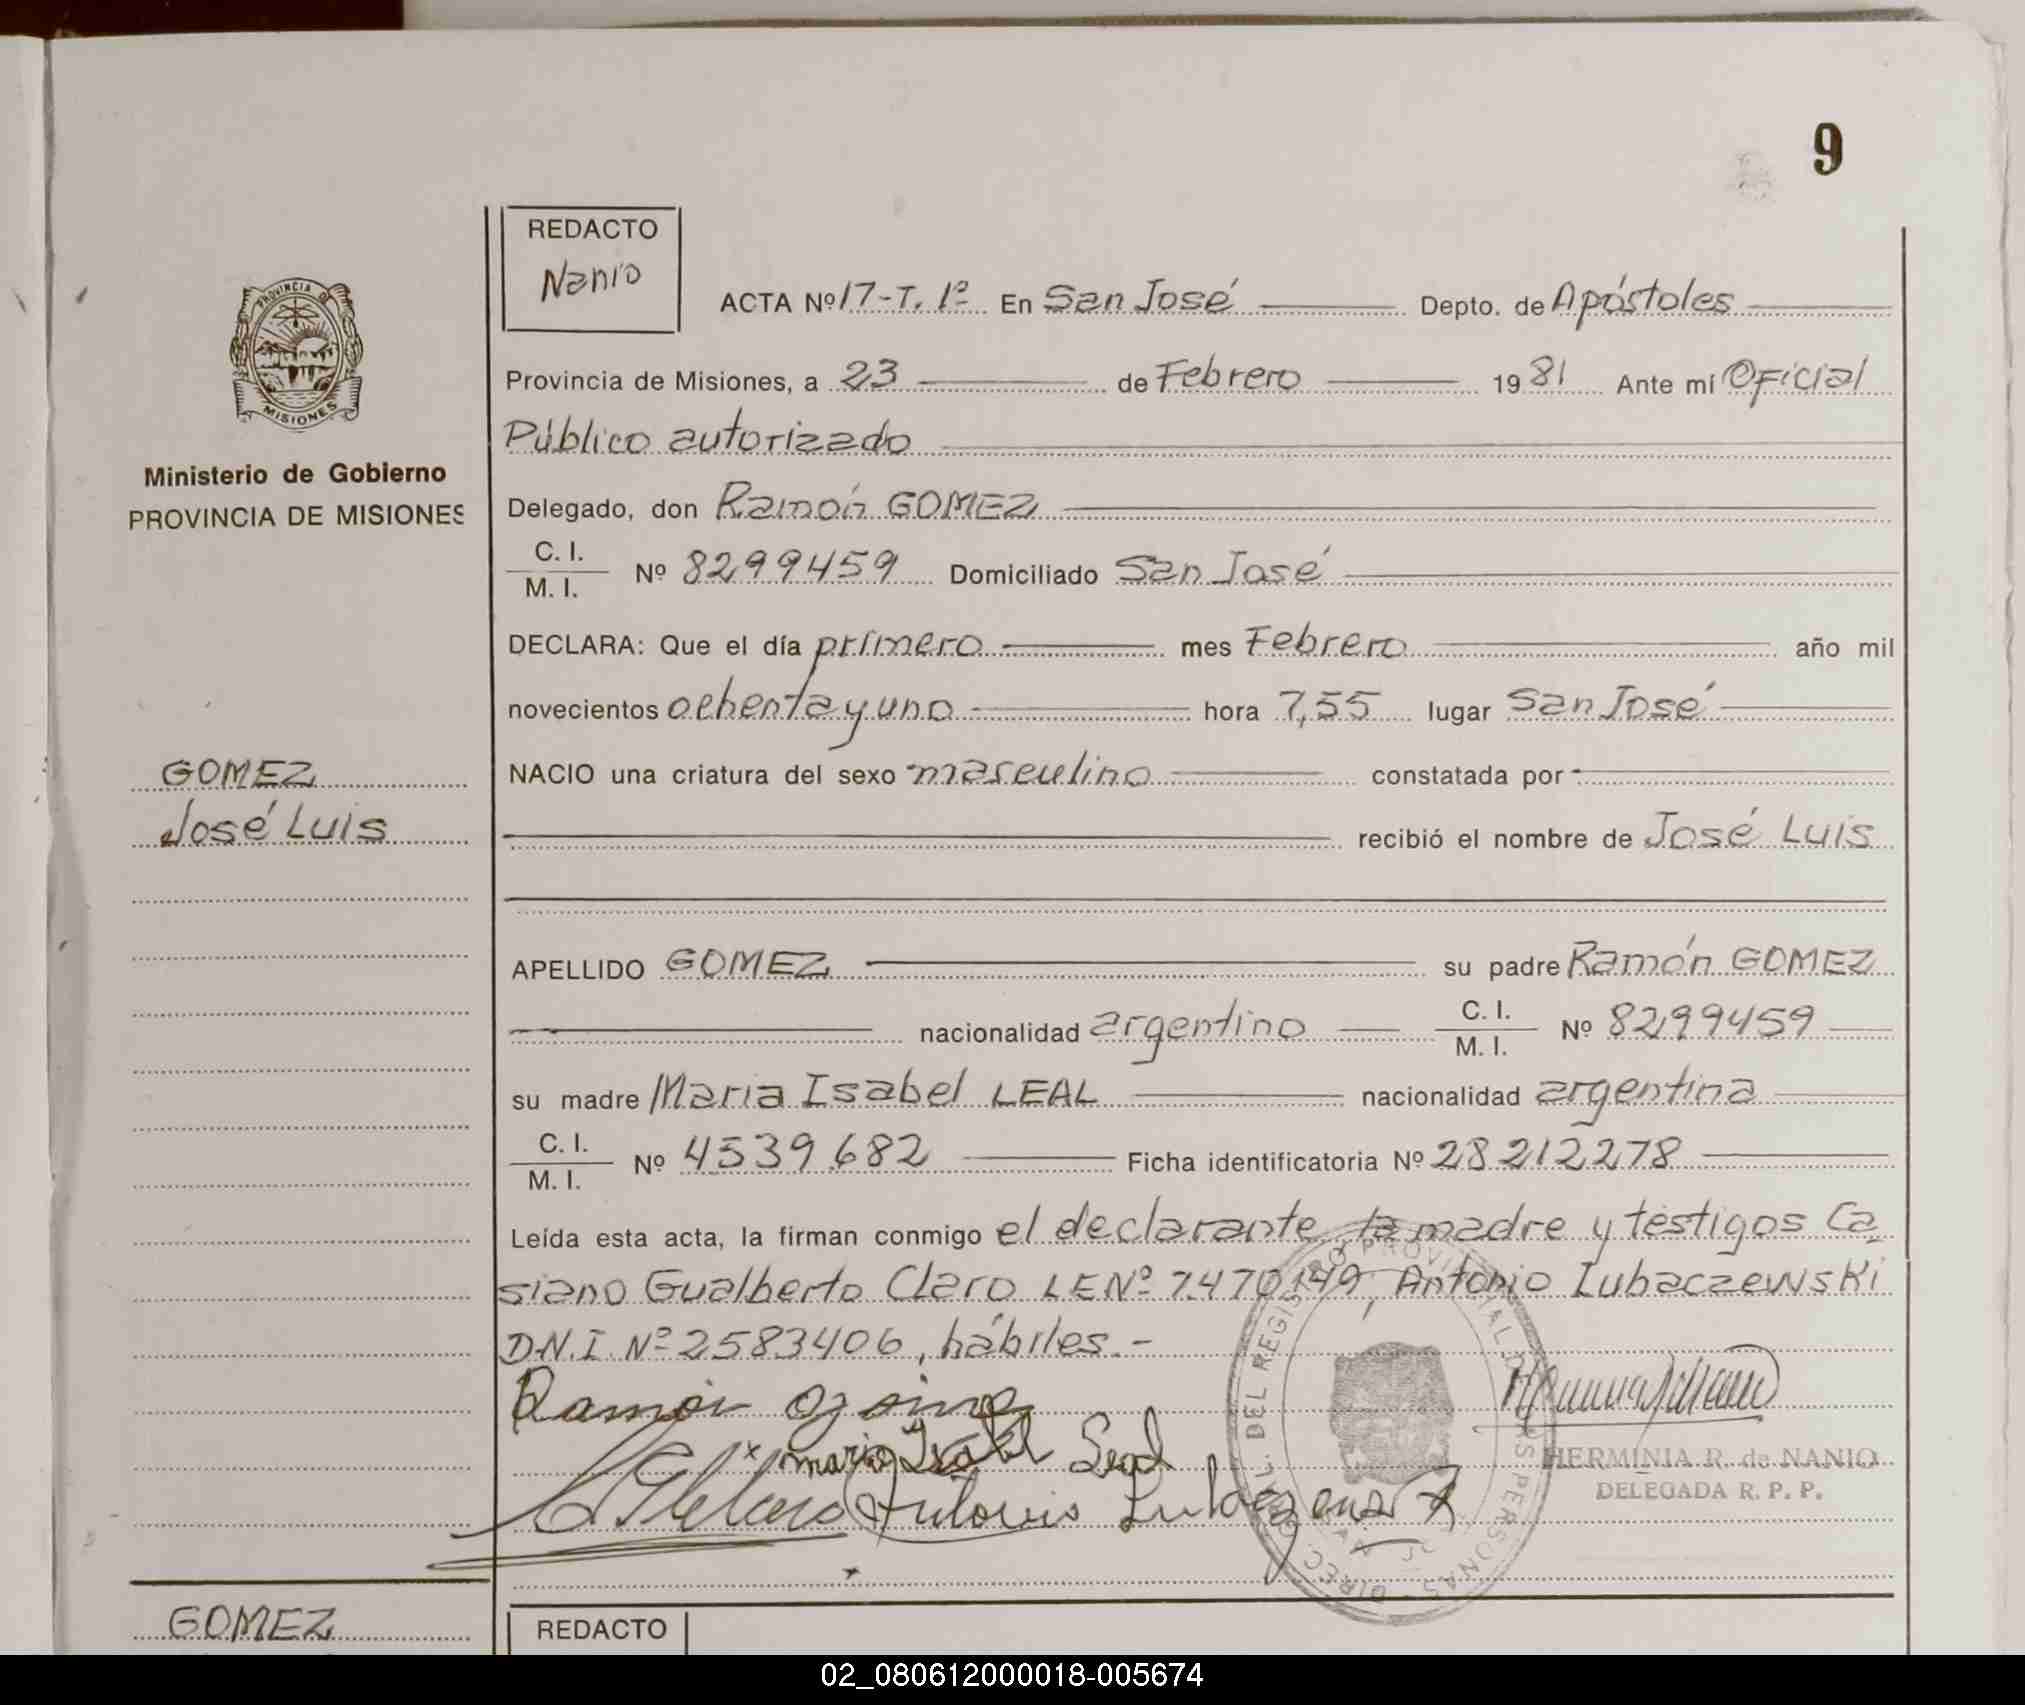 9
REDACTO
Nanio
ACTA Nº 17-T. 1º En San José Depto. de Apóstoles
Provincia de Misiones, a 23 de Febrero 1981 Ante mí Oficial
Público autorizado
Delegado, don Ramón GOMEZ
C. I.
M. I. Nº 8299459 Domiciliado San José
DECLARA: Que el día primero mes Febrero año mil
novecientos ochenta y uno hora 7,55 lugar San José
NACIO una criatura del sexo masculino constatada por
recibió el nombre de José Luis
APELLIDO GOMEZ su padre Ramón GOMEZ
nacionalidad argentino C. I.
M. I. Nº 8299459
su madre Maria Isabel LEAL nacionalidad argentina
C. I.
M. I. Nº 4539682 Ficha identificatoria Nº 28212278
Leída esta acta, la firman conmigo el declarante, la madre y testigos Ca-
siano Gualberto Claro LE Nº 7.470.149, Antonio Lubaczewski
D.N.I. Nº 2583406, hábiles.-
Ramón
maria Isabel Leal
Antonio
HERMINIA R. de NANIO
DELEGADA R. P. P.
DEL REGISTRO PROVINCIAL DE LAS PERSONAS
PROVINCIA DE
MISIONES
Ministerio de Gobierno
PROVINCIA DE MISIONES
GOMEZ
José Luis
GOMEZ
REDACTO
02_080612000018-005674